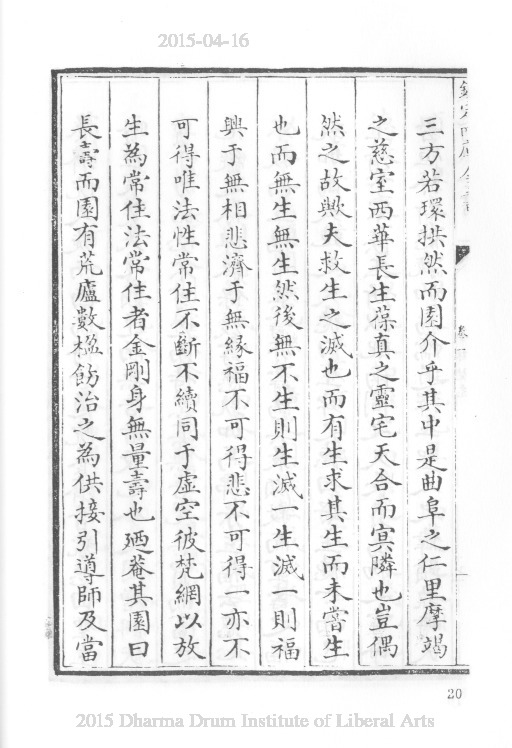 2015-04-16
三方若環拱然而園介乎其中是曲阜之仁里摩竭
之慈室西華長生葆真之靈宅天合而寘隣也豈偶
然之故歟夫救生之滅也而有生求其生而未嘗生
也而無生無生然後無不生則生滅一生滅一則福
興于無相悲濟于無緣福不可得悲不可得一亦不
可得唯法性常住不斷不續同于虛空彼梵網以放
生為常住法常住者金剛身無量壽也廼菴其園曰
長壽而園有荒廬數楹飭治之為供接引導師及當
卷一
20
2015 Dharma Drum Institute of Liberal Arts